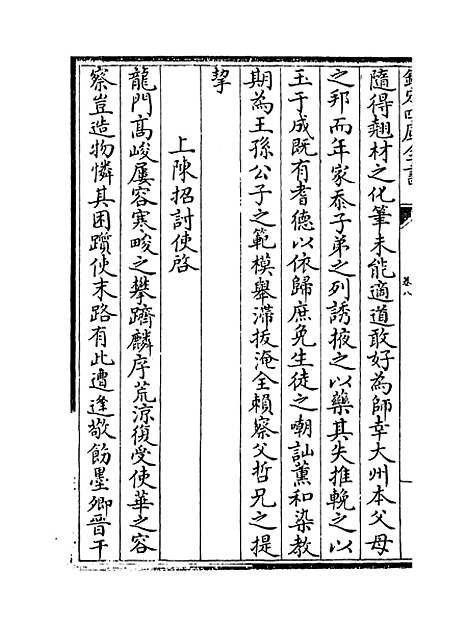 欽定四庫全書
卷八
隨得翹材之化筆未能適道敢好為師幸大州本父母
之邦而年家忝子弟之列誘掖之以藥其失推輓之以
玉于成既有耆德以依歸庶免生徒之嘲訕薰和染教
期為王孫公子之範模舉滯拔淹全賴察父哲兄之提
挈
上陳招討使啓
龍門高峻屢容寒畯之攀躋麟序荒涼復受使華之容
察豈造物憐其困躓使末路有此遭逢敬飭墨卿晉干